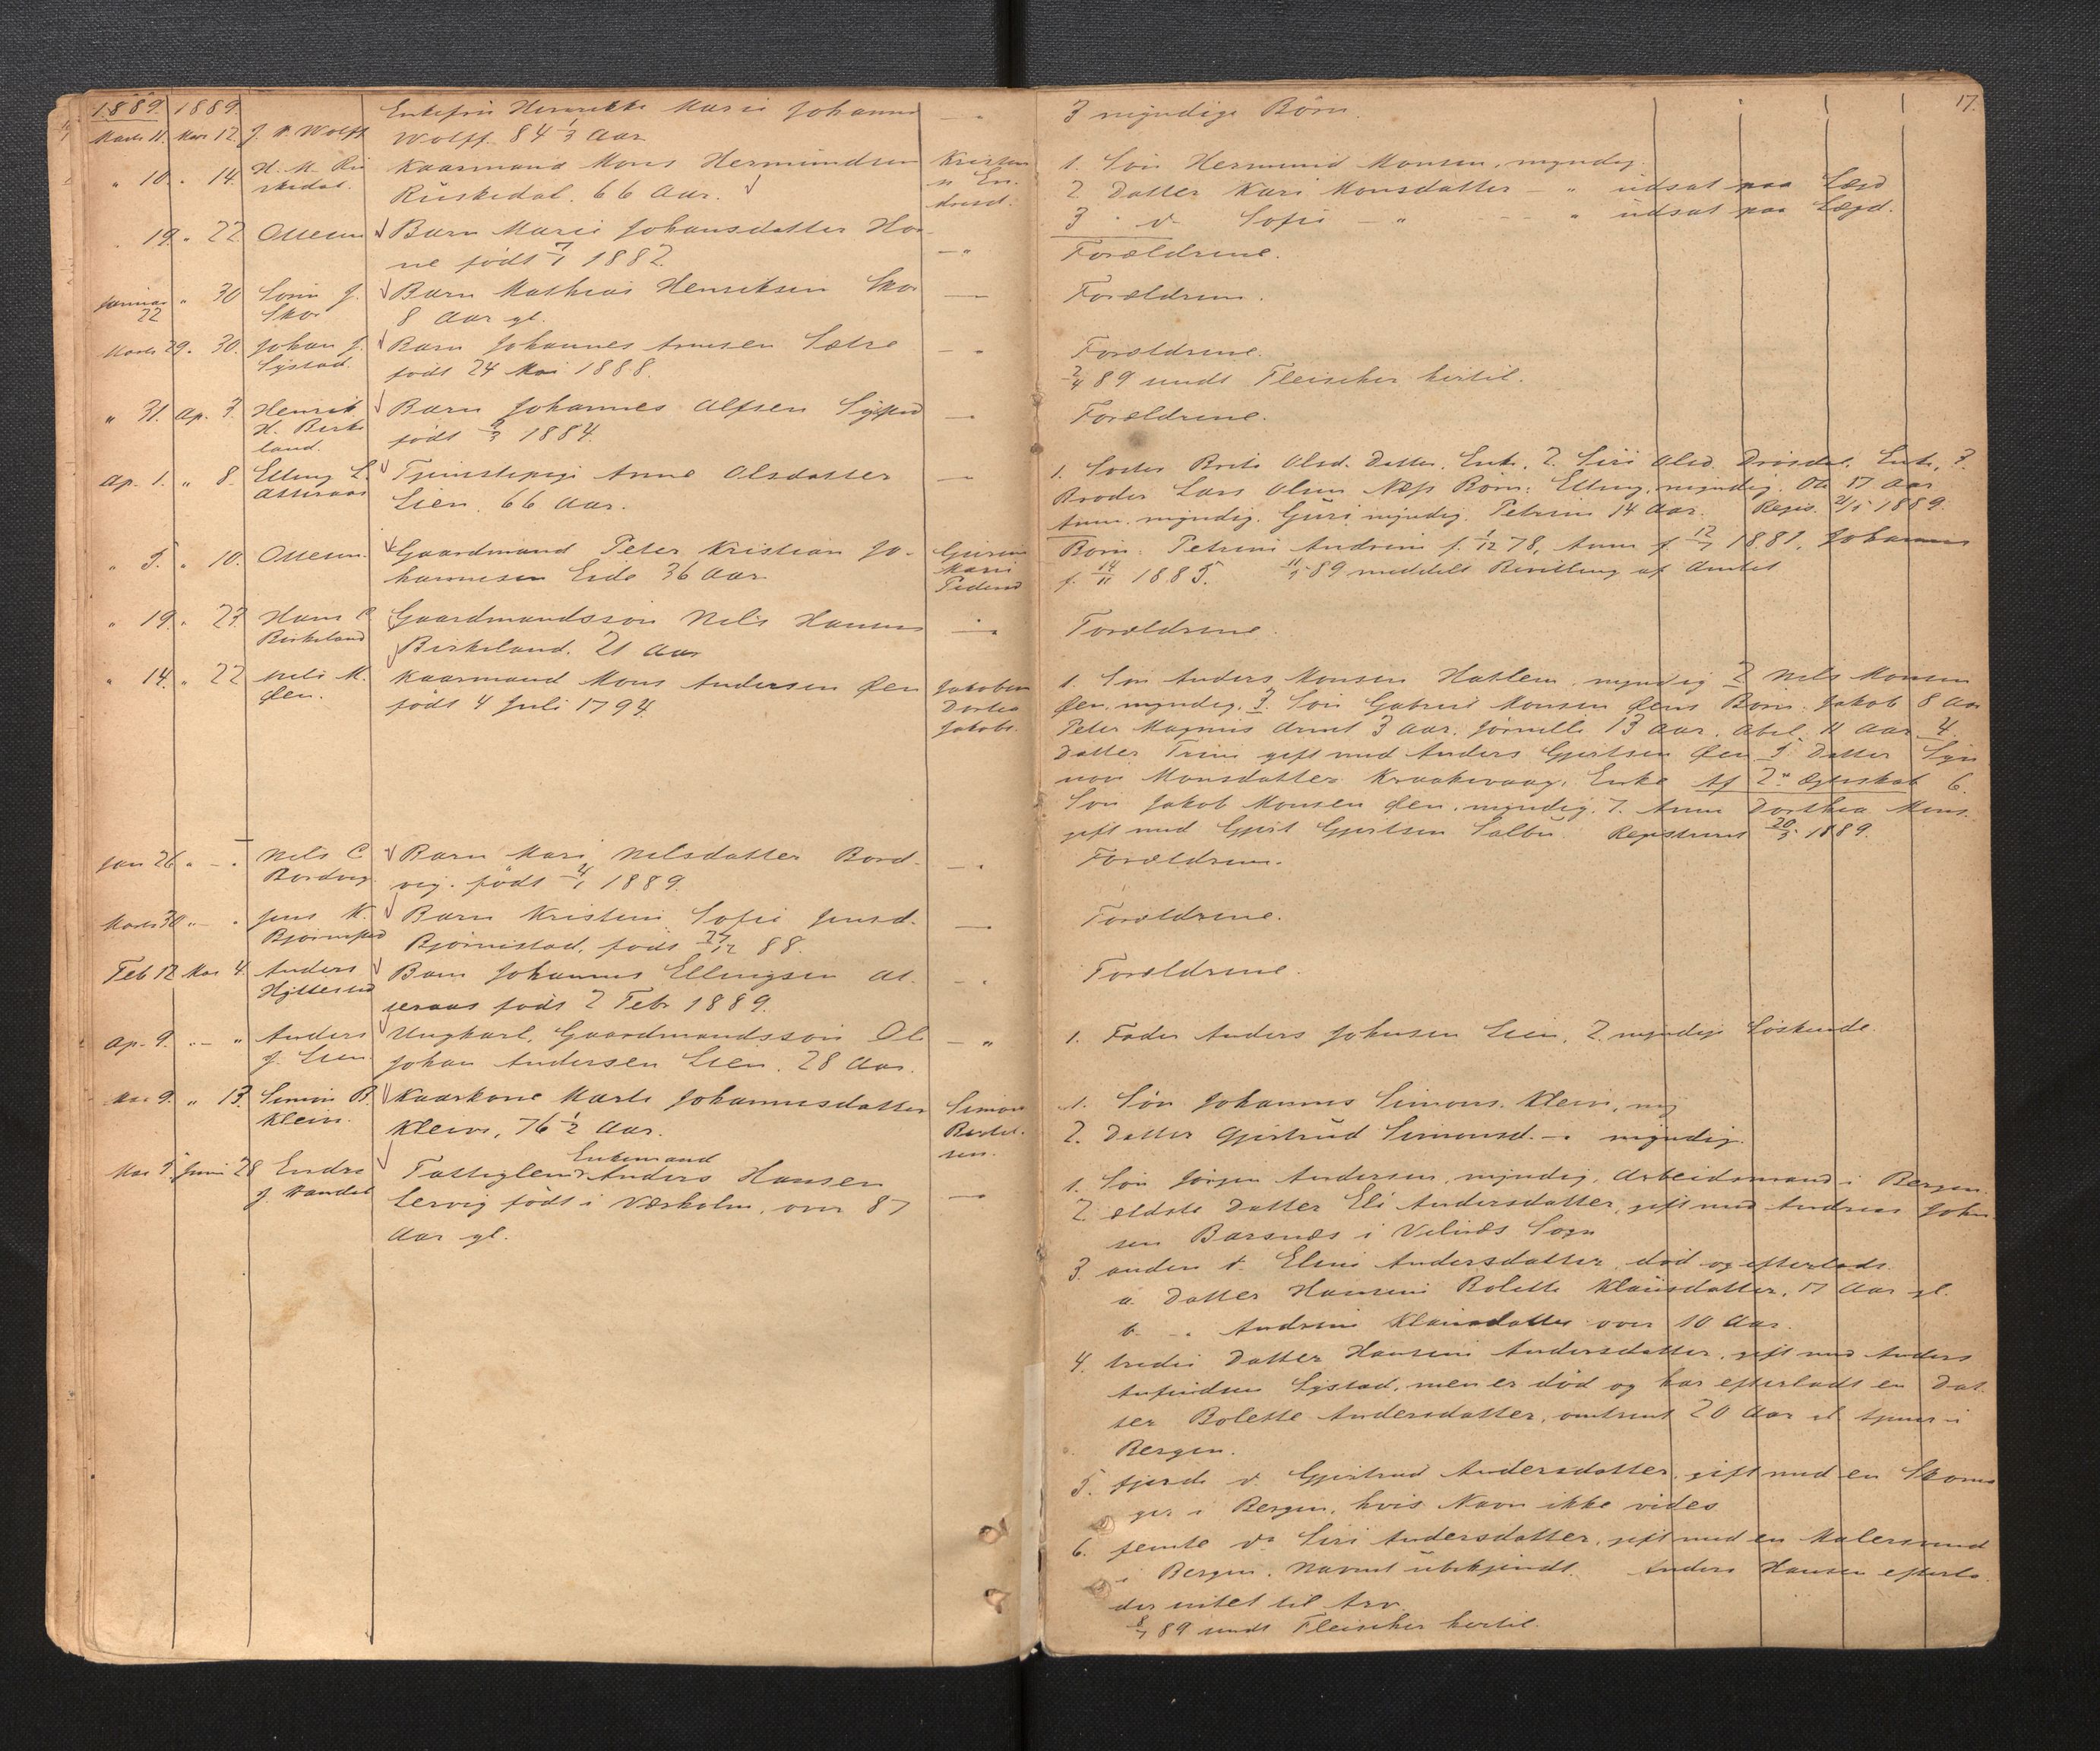 1889. 1889. Enkefru Henrikke Marie Johanne —"
Marts 11. Mar. 12. J. N. Wolff Wolff. 84 1/3 Aar
" 10. " 14. H. M. Ri Kaarmand Mons Hermundsen Kristen
skedal. Risekedal. 66 Aar.
" 19. " 22. Ottesen Barn Marie Johansdatter Ho
ne født 7/1 1882. —"
Januar " 30 J. Barn Mathias Henriksen Sko —
22 Sko. 8 Aar gl.
Marts 29. " 30. Johan J. Barn Johannes Arnesen Sætre —"
Systad. født 24 Mai 1888.
" 31. Ap. 3. Henrik Barn Johannes Alfsen Systad —
H. Birke født 1884.
land.
Ap. 1. " 8. Elling L. Tjenestepige Anne Olsdatter —
Atteraas Lien. 66 Aar.
" 5. " 10. Ottesen. Gaardmand Peter Kristian Jo-
hannesen Eide 36 Aar Marie
Pedersd
" 19. " 23. Hans Gaardmandssøn Nels Hansen —
Birkeland Birkeland. 21 Aar
" 14. " 22 Nels M. Kaarmand Mons Andersen Øen Jakobine
Øen. født 4 Juli 1794. Dortea
Jakobs.
Jan 26 " — " Nels Barn Mari Nelsdatter Bord- —"
Bordvig. vig. født 4/1 1889.
Marts 30 " — " Jens K. Barn Kristine Sofie Jensd. —
Bjørnestad Bjørnestad, født 27/12 88.
Feb 12. Mai 4. Anders Barn Johannes Ellingsen At- —"
Hyllestad teraas født 2 Febr 1889.
Ap. 9. " — " Anders Ungkarl, Gaardmandssøn Ol —"
J. Lien. Johan Andersen Lien. 28 Aar.
Mai 9. " 13. Simon B. Kaarkone Marte Johannesdatter Simon
Kleiven. Kleive, 76 1/2 Aar. Bertel-
sen.
Enkemand
Mai 5. Juni 28 Endre Fattiglem Anders Hansen —
J. Lervig født i Værholm, over 87
Aar gl.
17.
3 myndige Børn.
1. Søn Hermund Monsen, myndig.
2. Datter Kari Monsdatter — " udsat paa Lægd
3 do Sofie — " " udsat paa Lægd.
Forældrene.
Forældrene.
Forældrene.
2/4 89 sendt Fleischer hertil.
Forældrene.
1. Søster Brita Olsd. Datter, Enke, 2. Siri Olsd. Enke, 3.
Broder Lars Olsen Næss Børn: Elling, myndig. Ole 17 Aar
Anne, myndig. Guri, myndig. Petrine 14 Aar. Regis. 21/5 1889.
Børn: Petrine Andrine f. 1/12 78, Anne f. 12/7 1881, Johannes
f. 14/11 1885. 89 meddelt Bevilling af Amtet
Forældrene.
1. Søn Anders Monsen Hatlem, myndig 2. Nels Monsen
Øen, myndig, 3. Søn Gabriel Monsen Øens Børn: Jakob 8 Aar
Peter Magnus Arent 3 Aar. 13 Aar, Abel 11 Aar 4.
Datter Trine gift med Anders Gjertsen Øen 5. Datter Syn
nøve Monsdatter Kraakevaag, Enke Af 2" Ægteskab 6.
Søn Jakob Monsen Øen, myndig, 7. Anne Dorthea Mons.
gift med Gjert Gjertsen Salbu. Registreret 20/5 1889.
Forældrene.
Forældrene.
Forældrene.
1. Fader Anders Johnsen Lien, 2. myndige Søskende.
1. Søn Johannes Simons. Kleiv, my
2. Datter Gjertrud Simonsd. — " myndig.
1. Søn Jørgen Andersen, myndig, Arbeidsmand i Bergen.
2. ældste Datter Eli Andersdatter, gift med Andreas John
sen Barsnæs i Vilnæs Sogn
3. anden do Eline Andersdatter, død og efterladt
a. Datter Hansine Bolette Klausdatter, 17 Aar gl.
b. — " Andrine Klausdatter over 10 Aar.
4. tredie Datter Hansine Andersdatter, gift med Anders
Anfindsen Systad, men er død og har efterladt en Dat-
ter Bolette Andersdatter, omtrent 20 Aar gl. tjener i
Bergen.
5. fjerde do Gjertrud Andersdatter, gift med en Skoma
ger i Bergen, hvis Navn ikke vides
6. femte do Siri Andersdatter, gift med en Malersvend
i Bergen. Navnet ubekjendt. Anders Hansen efterla
der intet til Arv.
8/7 89 sendt Fleischer hertil.